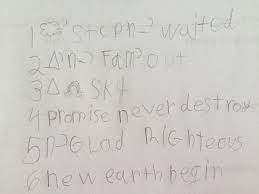 1 steph waited
2 Fam out
3 SKY
4 promise never destroy
5 Glad RiGhteous
6 new earth begin